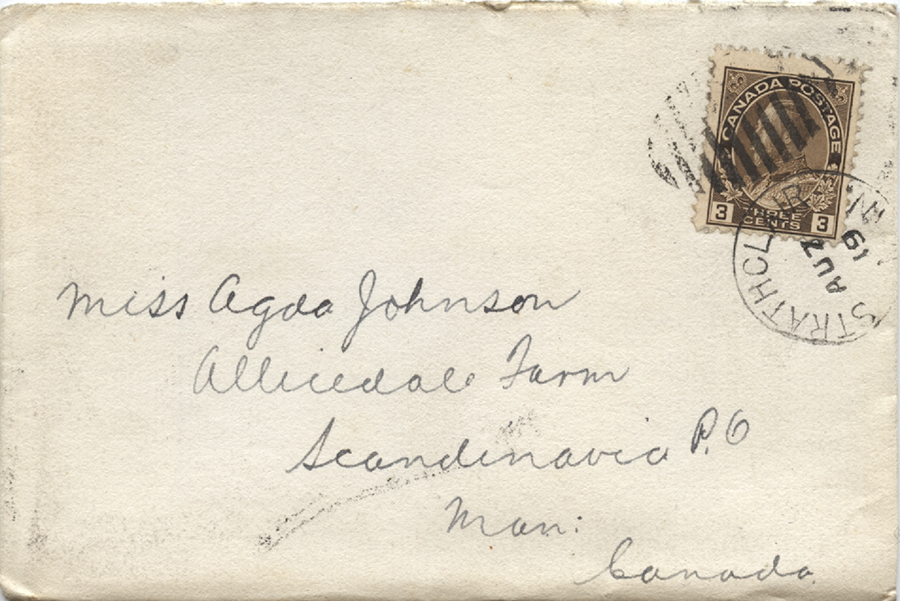 CANADA POSTAGE
3 THREE CENTS 3
STRATHCLAIR
AU
19
Miss Agda Johnson
Allicedale Farm
Scandinavia P.O
Man:
Canada